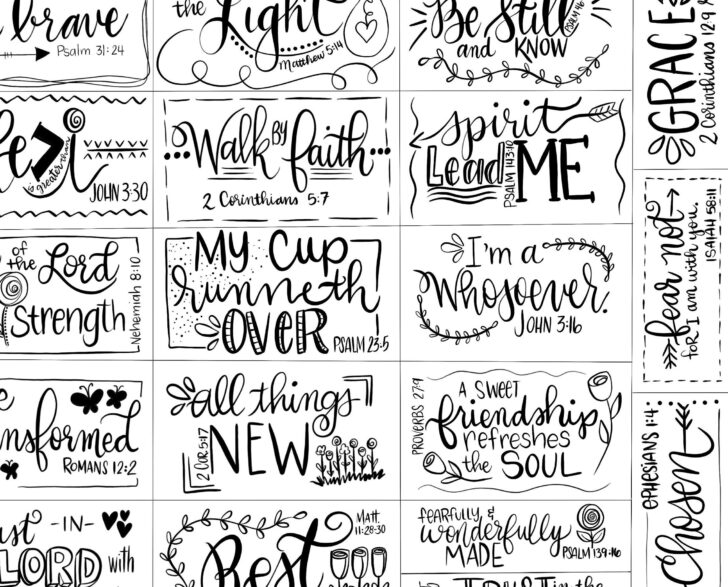 brave
Psalm 31:24
the Light
Matthew 5:14
Be Still
and KNOW
PSALM 46
GRACE
2 Corinthians 12:9
he > i
is greater than
JOHN 3:30
Walk BY faith
2 Corinthians 5:7
spirit
Lead ME
PSALM 143:10
fear not
for I am with you.
ISAIAH 58:11
of the Lord
Strength
Nehemiah 8:10
My Cup
runneth
OVER
PSALM 23:5
I'm a
Whosoever.
JOHN 3:16
nsformed
ROMANS 12:2
all things
NEW
2 Cor. 5:17
A SWEET
friendship
refreshes
the SOUL
PROVERBS 27:9
EPHESIANS 1:4
Chosen
ust -IN-
LORD with
Best
Matt.
11:28-30
fearfully, &
wonderfully
MADE
PSALM 139:16
TRUST in the